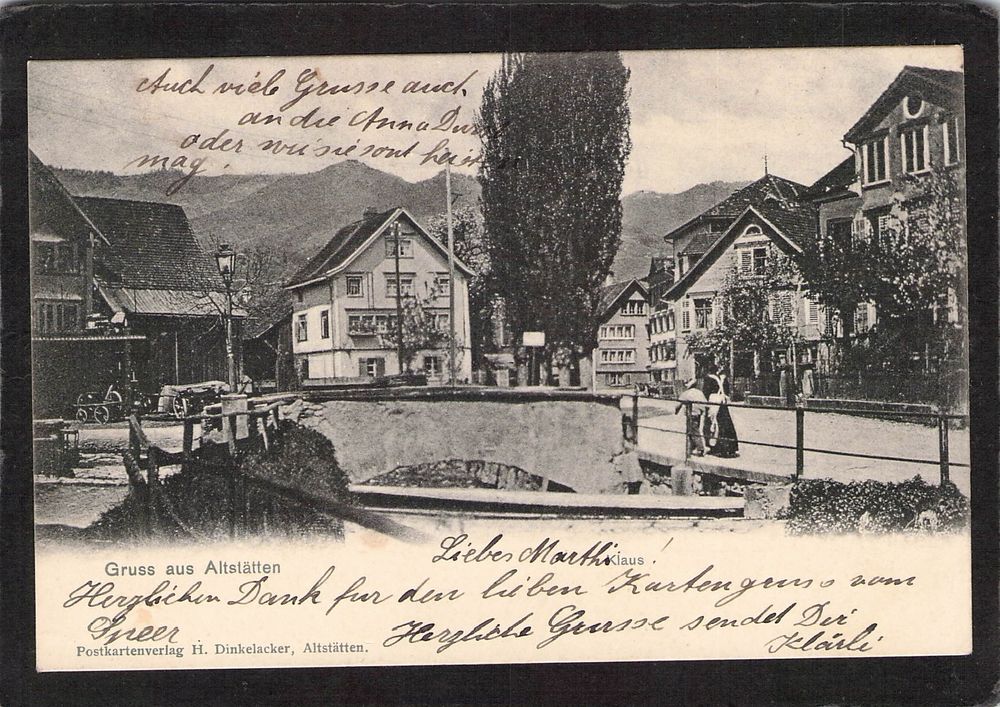 Auch viele Grusse auch
an die Anna Dur
oder wie sie sont heissen
mag.
Gruss aus Altstätten
Klaus
Liebes Marthi!
Herzlichen Dank fur den lieben Kartengruss vom
Speer
Herzliche Grusse sendet Dir
Klärli
Postkartenverlag H. Dinkelacker, Altstätten.